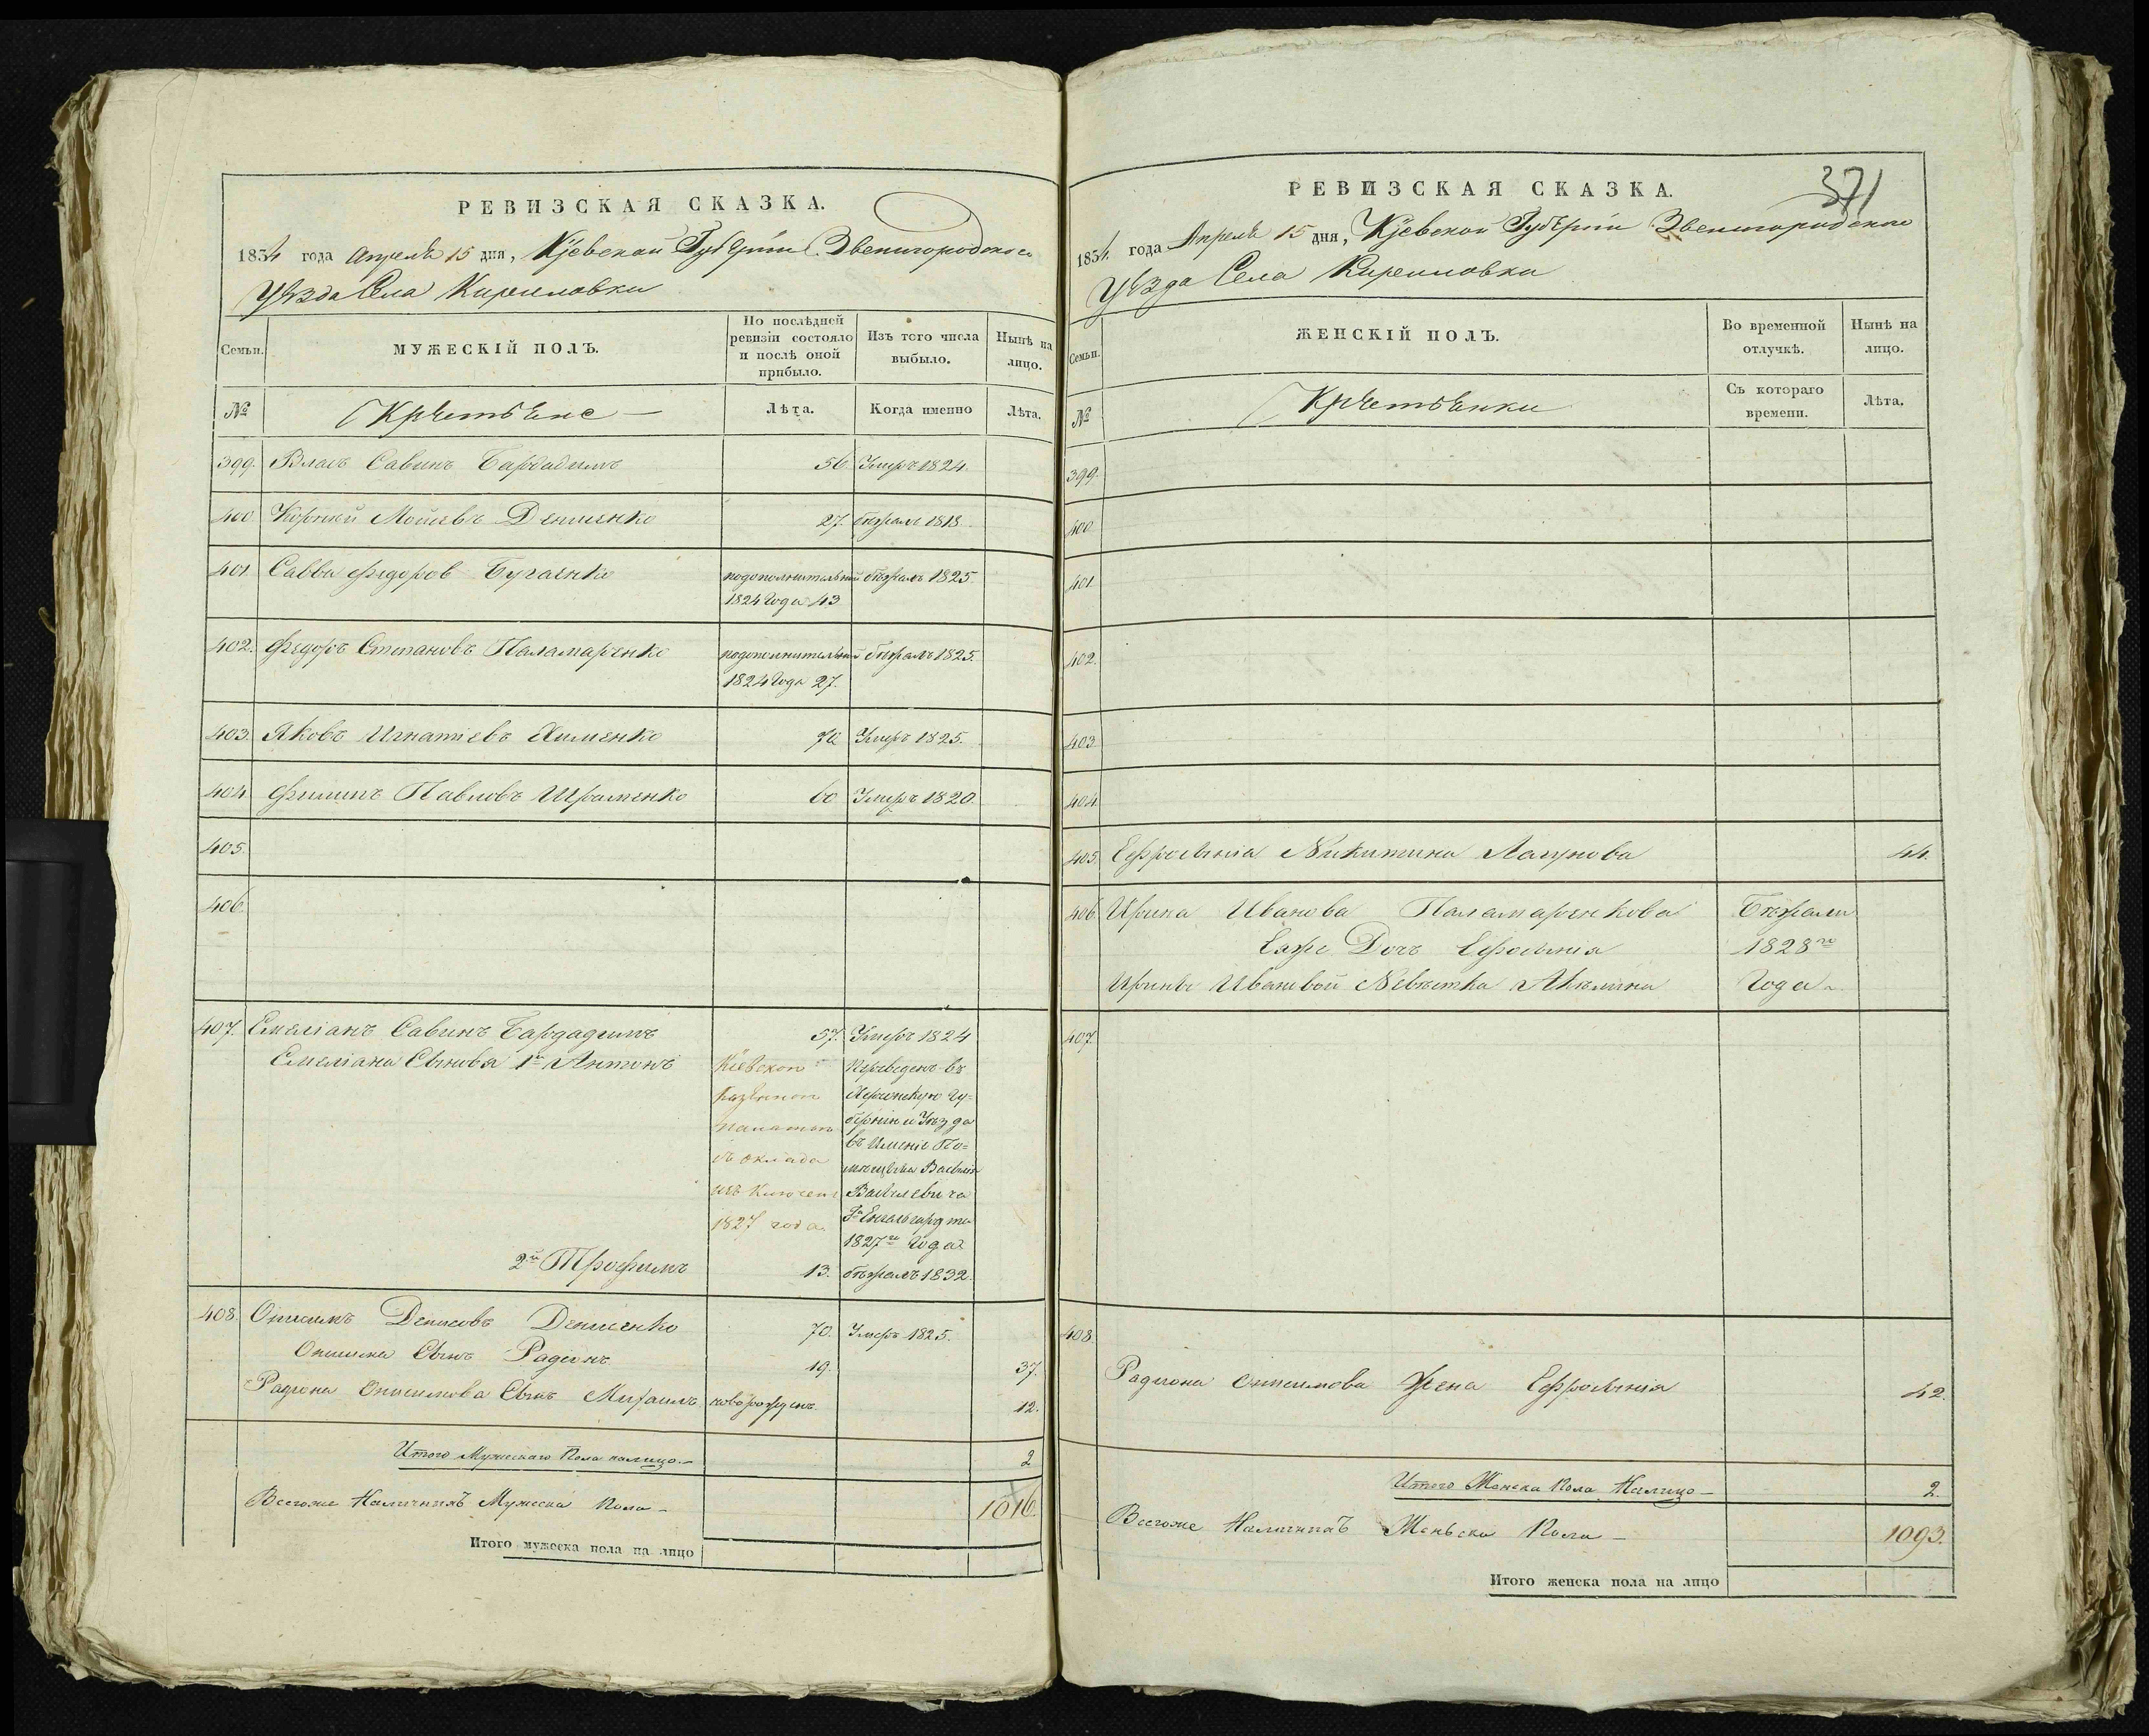 РЕВИЗСКАЯ СКАЗКА.
1834 года Апреля 15 дня, Кіевской Губерніи Звенигородскаго
Уѣзда Села Кириловки
Семьи.
МУЖЕСКІЙ ПОЛЪ.
По послѣдней ревизіи состояло и послѣ оной прибыло.
Изъ того числа выбыло.
Нынѣ на лицо.
№
Крѣстьѣне
Лѣта.
Когда именно
Лѣта.
399. Власъ Савинъ Бардадимъ 56. Умеръ 1824.
400. Корней Мойсевъ Денисенко 27. бѣжалъ 1818.
401. Савва Федоров Бугаенко подополнительной бѣжалъ 1825.
1824 Года 43
402. Федоръ Степановъ Паламаренко подополнительной бѣжалъ 1825.
1824 Года 27.
403. Яковъ Игнатіевъ Клименко 70 Умеръ 1825.
404. Филипъ Павловъ Ираменко 60 Умеръ 1820.
405.
406.
407. Емеліанъ Савинъ Бардадимъ 57. Умеръ 1824
Емеліана Сынова 1й Антонъ Кіевскою Переведенъ въ
казенною Херсонскую Гу=
палатою берніи и Уѣзда
въ Имѣніе По=
съ оклада мѣщика Василія
исключенъ Васильевича
1827 года Гна Енгельгардта
1827го Года
2й Трофимъ 13. бѣжалъ 1832.
408. Онисимъ Денисовъ Денисенко 70. Умеръ 1825.
Онисима Сынъ Радіонъ 19. 37.
Радіона Онисимова Сынъ Михаилъ новорожденъ. 12.
Итого Мужескаго Пола налицо.— 2
Всегоже Наличныхъ Мужеска Пола— 1016.
Итого мужеска пола на лицо
371
РЕВИЗСКАЯ СКАЗКА.
1834. года Апреля 15 дня, Кіевской Губерніи Звенигородскаго
Уѣзда Села Кириловки
Семьи.
ЖЕНСКІЙ ПОЛЪ.
Во временной отлучкѣ.
Нынѣ на лицо.
№
Крѣстьѣнки
Съ котораго времени.
Лѣта.
399.
400.
401.
402.
403.
404.
405. Ефросинія Никитина Лагунова 44.
406. Ирина Иванова Паламаренкова Бѣжали
Еяже Дочъ Ефросинія 1828го
Ирины Ивановой Невѣстка Акилина Года
407.
408.
Радіона Онисимова Жена Ефросинія 42.
Итого Женска Пола Налицо— 2.
Всегоже Наличныхъ Женьска Пола— 1093.
Итого женска пола на лицо